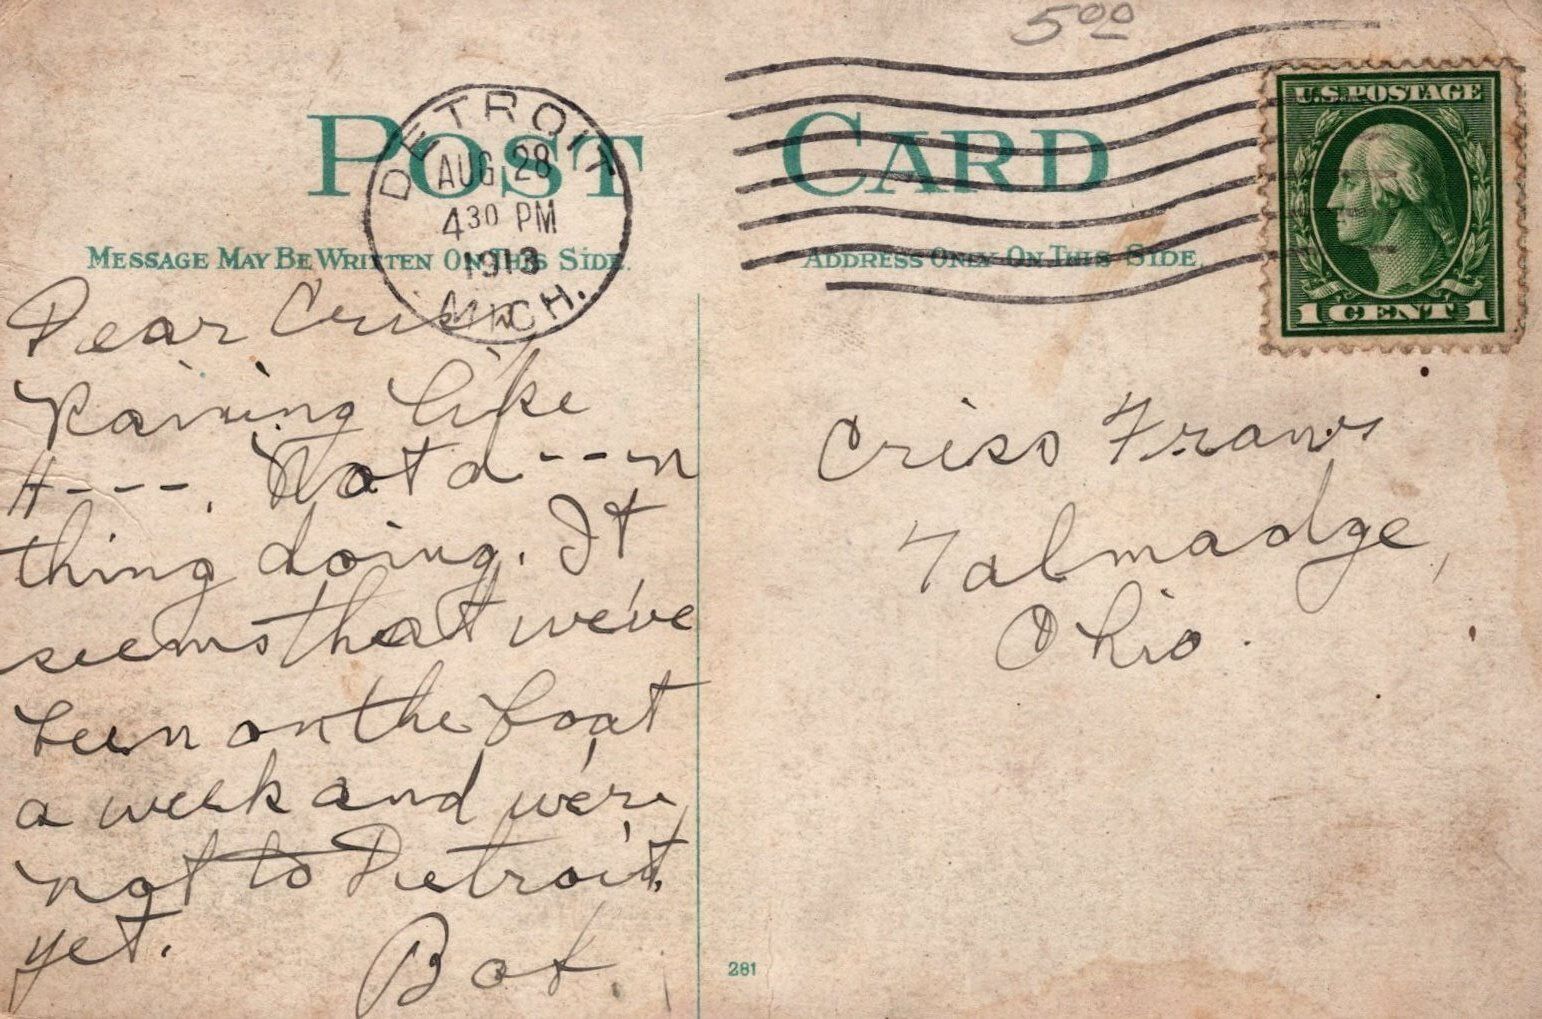 5.00
POST CARD
DETROIT
AUG 28
4 30 PM
1913
MICH.
U.S. POSTAGE
1 CENT 1
MESSAGE MAY BE WRITTEN ON THIS SIDE.
ADDRESS ONLY ON THIS SIDE.
Dear
Raining like
H----. Not a d---n
thing doing. It
seems that we've
been on the boat
a week and we're
not to Detroit
yet.
Criss
Talmadge,
Ohio.
281